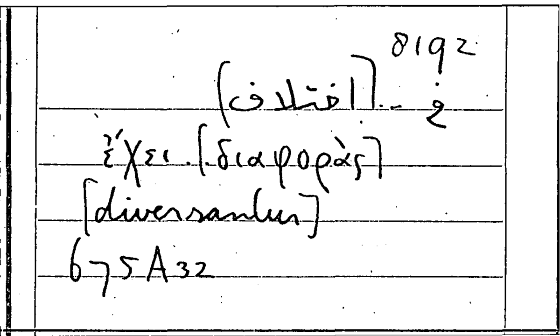 8192
[اختلاف] .. في
ἔχει .[διαφοράς]
[diversantur]
675A32